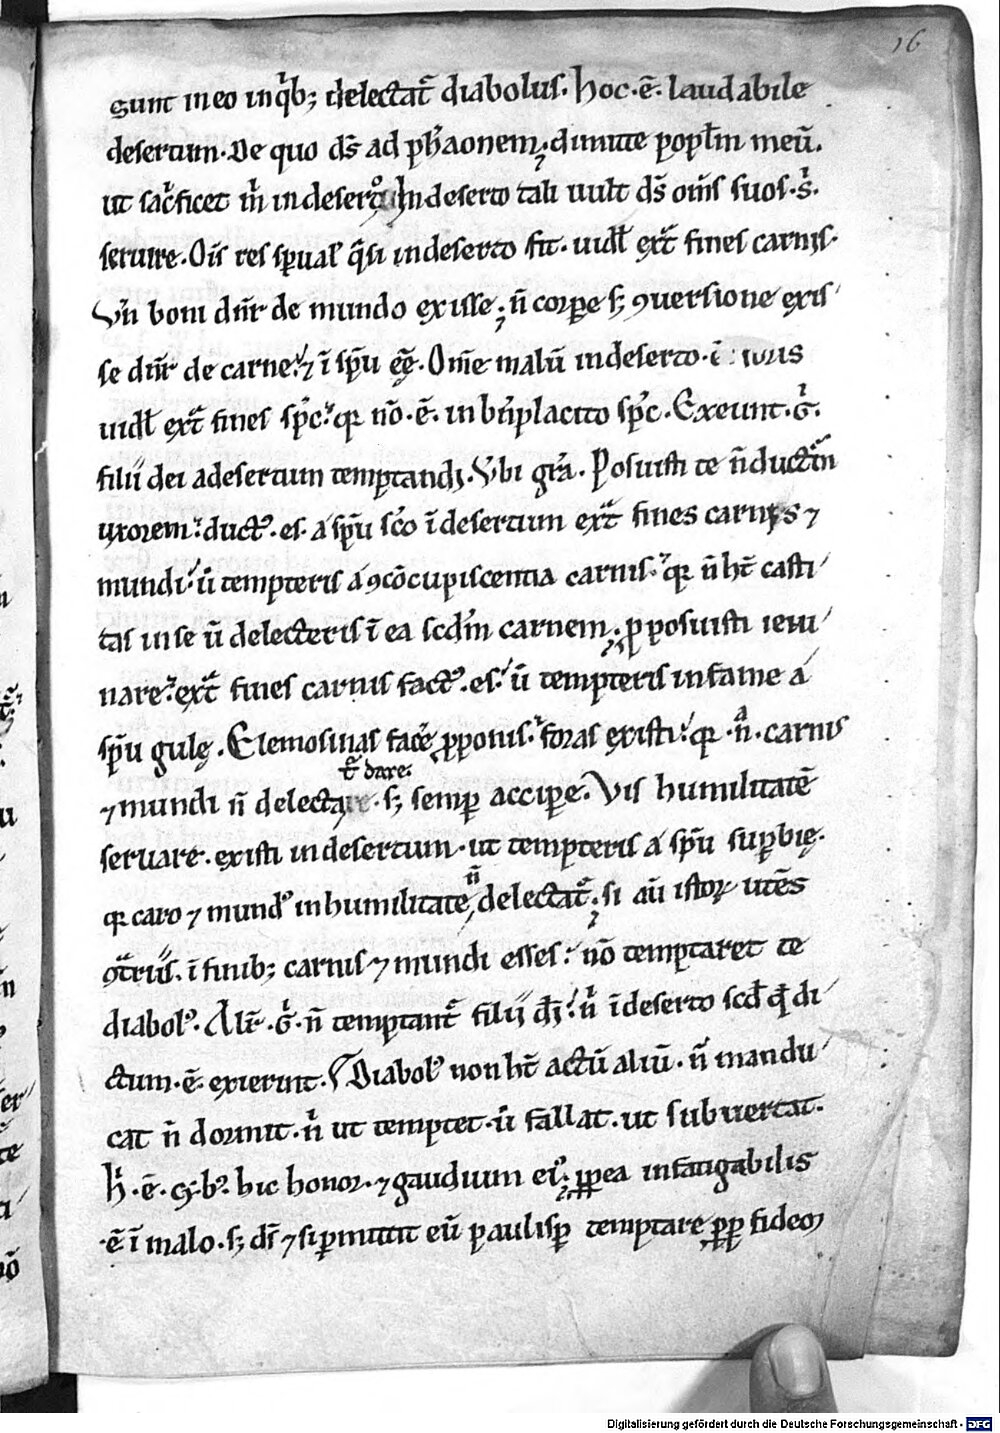 16
sunt in eo in qͥb; delectat᷑ diabolus. hoc .ē. laudabile
desertum. De quo dn̄s ad ph̄aonem; dimitte popl̄m meū.
ut sacͥficet m̄ in deserto. In deserto tali uult ds̄ om̄s suos .s.
seruire. Oīs res sp̄ual̓ qͣsi in deserto fit. uidl̓ ext̄ fines carnis.
Vn̄ boni dn̄r de mundo exisse; n̄ corpꝑe s; ꝯuersione exis
se dn̄r de carne ⁊ ī sp̄u eē. Om̄e malū in deserto .ē.
uidl̓ ext̄ fines sp̄c qꝛ nō .ē. in bn̄placito sp̄c. Exeunt .gͥ.
filii dei a desertum temptandi. Vbi gr̄a. Posuisti te n̄ ductūm
uxorem. ductꝰ .es. a sp̄u sc̄o ī desertum ext̄ fines carnis ⁊
mundi. ū tempteris a ꝯcōcupiscentia carnis. qꝛ n̄ ht̄ casti
tas in se ū delecteris ī ea scdm̄ carnem; ꝓposuisti ieiu
nare. ext̄ fines carnis factꝰ .es. ū tempteris in fame a
sp̄u gulę. Elemosinas facͤe ꝓponis. foras existi. qꝛ .n̄. carnis
t᷑ dare.
⁊ mundi n̄ delecta .s; semꝑ accipͤe. Vis humilitatē
seruare. existi in desertum. ut tempteris a sp̄u suꝑbię.
n̄
qꝛ caro ⁊ mundꝰ in humilitate delectat᷑; si aū istoꝝ utēs
ꝯtͣrius. ī finib; carnis ⁊ mundi esses. nō temptaret te
diabolꝰ. Alit̄ .gͥ. n̄ temptant᷑ filii dī. nͥ ī deserto scd̄ qd̄ di
ctum .ē. exierint. Diabolꝰ non ht̄ actū aliū. n̄ mandu
cat n̄ dormit. nͥ ut temptet. ū fallat. ut subuertat.
hͥ .ē. cy bꝰ. hic honor. ⁊ gaudium eiꝰ. ꝓpͥea infatigabilis
.ē ī malo. s; ds̄ ⁊ si ꝑmittit eū paulisꝑ temptare ꝓpꝑ fideom
Digitalisierung gefördert durch die Deutsche Forschungsgemeinschaft - DFG